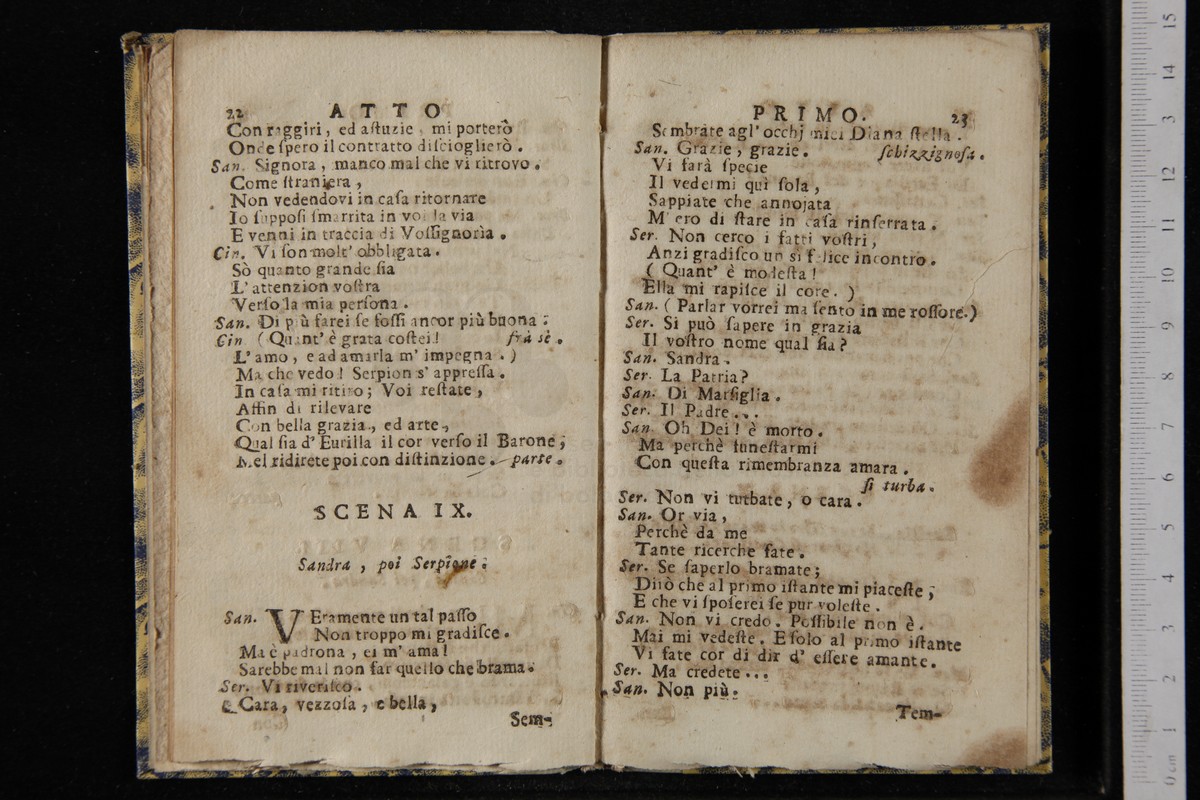 22 ATTO
Con raggiri, ed aſtuzie, mi porterò
Onde ſpero il contratto diſcioglierò.
San. Signora, manco mal che vi ritrovo.
Come ſtraniera,
Non vedendovi in caſa ritornare
Io ſuppoſi ſmarrita in voi la via
E venni in traccia di Voſſignorìa.
Cin. Vi ſon molt' obbligata.
Sò quanto grande ſia
L' attenzion voſtra
Verſo la mia perſona.
San. Di più farei ſe foſſi ancor più buona.
Cin. (Quant' è grata coſtei! frà sè.
L' amo, e ad amarla m' impegna.)
Ma che vedo! Serpion s' appreſſa.
In caſa mi ritiro; Voi reſtate,
Affin di rilevare
Con bella grazia, ed arte,
Qual ſia d' Eurilla il cor verſo il Barone;
Mel ridirete poi con diſtinzione. parte.
SCENA IX.
Sandra, poi Serpione.
San. VEramente un tal paſſo
Non troppo mi gradiſce.
Ma è padrona, ei m' ama!
Sarebbe mal non far quello che brama.
Ser. Vi riveriſco.
Cara, vezzoſa, e bella,
Sem-
PRIMO. 23
Sembrate agl' occhj miei Diana ſtella.
San. Grazie, grazie. ſchizzignoſa.
Vi farà ſpecie
Il vedermi quì ſola,
Sappiate che annojata
M' ero di ſtare in caſa rinſerrata.
Ser. Non cerco i fatti voſtri,
Anzi gradiſco un sì felice incontro.
(Quant' è modeſta!
Ella mi rapiſce il core.)
San. (Parlar vorrei ma ſento in me roſſore.)
Ser. Si può ſapere in grazia
Il voſtro nome qual ſia?
San. Sandra.
Ser. La Patria?
San. Di Marſiglia.
Ser. Il Padre...
San. Oh Dei! è morto.
Ma perchè funeſtarmi
Con queſta rimembranza amara.
ſi turba.
Ser. Non vi turbate, o cara.
San. Or via,
Perchè da me
Tante ricerche fate.
Ser. Se ſaperlo bramate;
Dirò che al primo iſtante mi piaceſte;
E che vi ſpoſerei ſe pur voleſte.
San. Non vi credo. Poſſibile non è.
Mai mi vedeſte. E ſolo al primo iſtante
Vi fate cor di dir d' eſſere amante.
Ser. Ma credete...
San. Non più.
Tem-